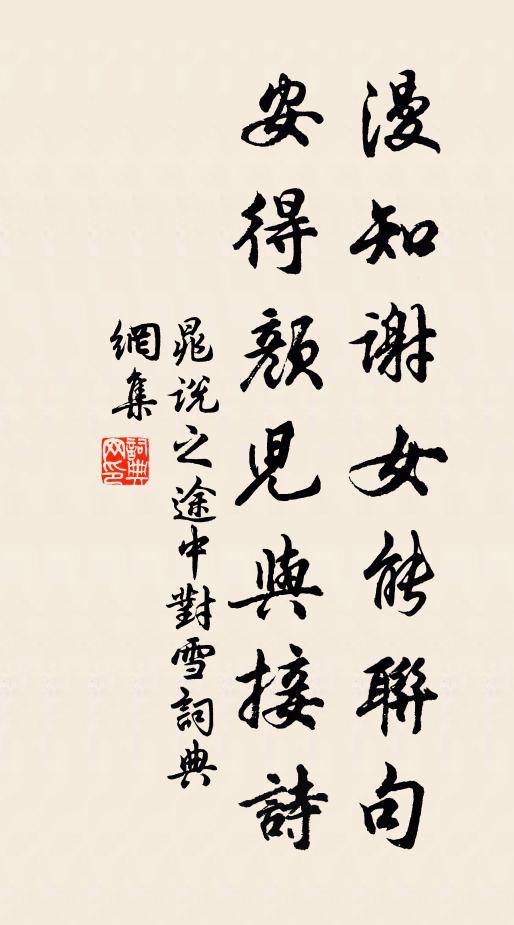 漫知謝女能聯句
安得顏兒與接詩
晁說之途中對雪詞典
網集
詞典
网印